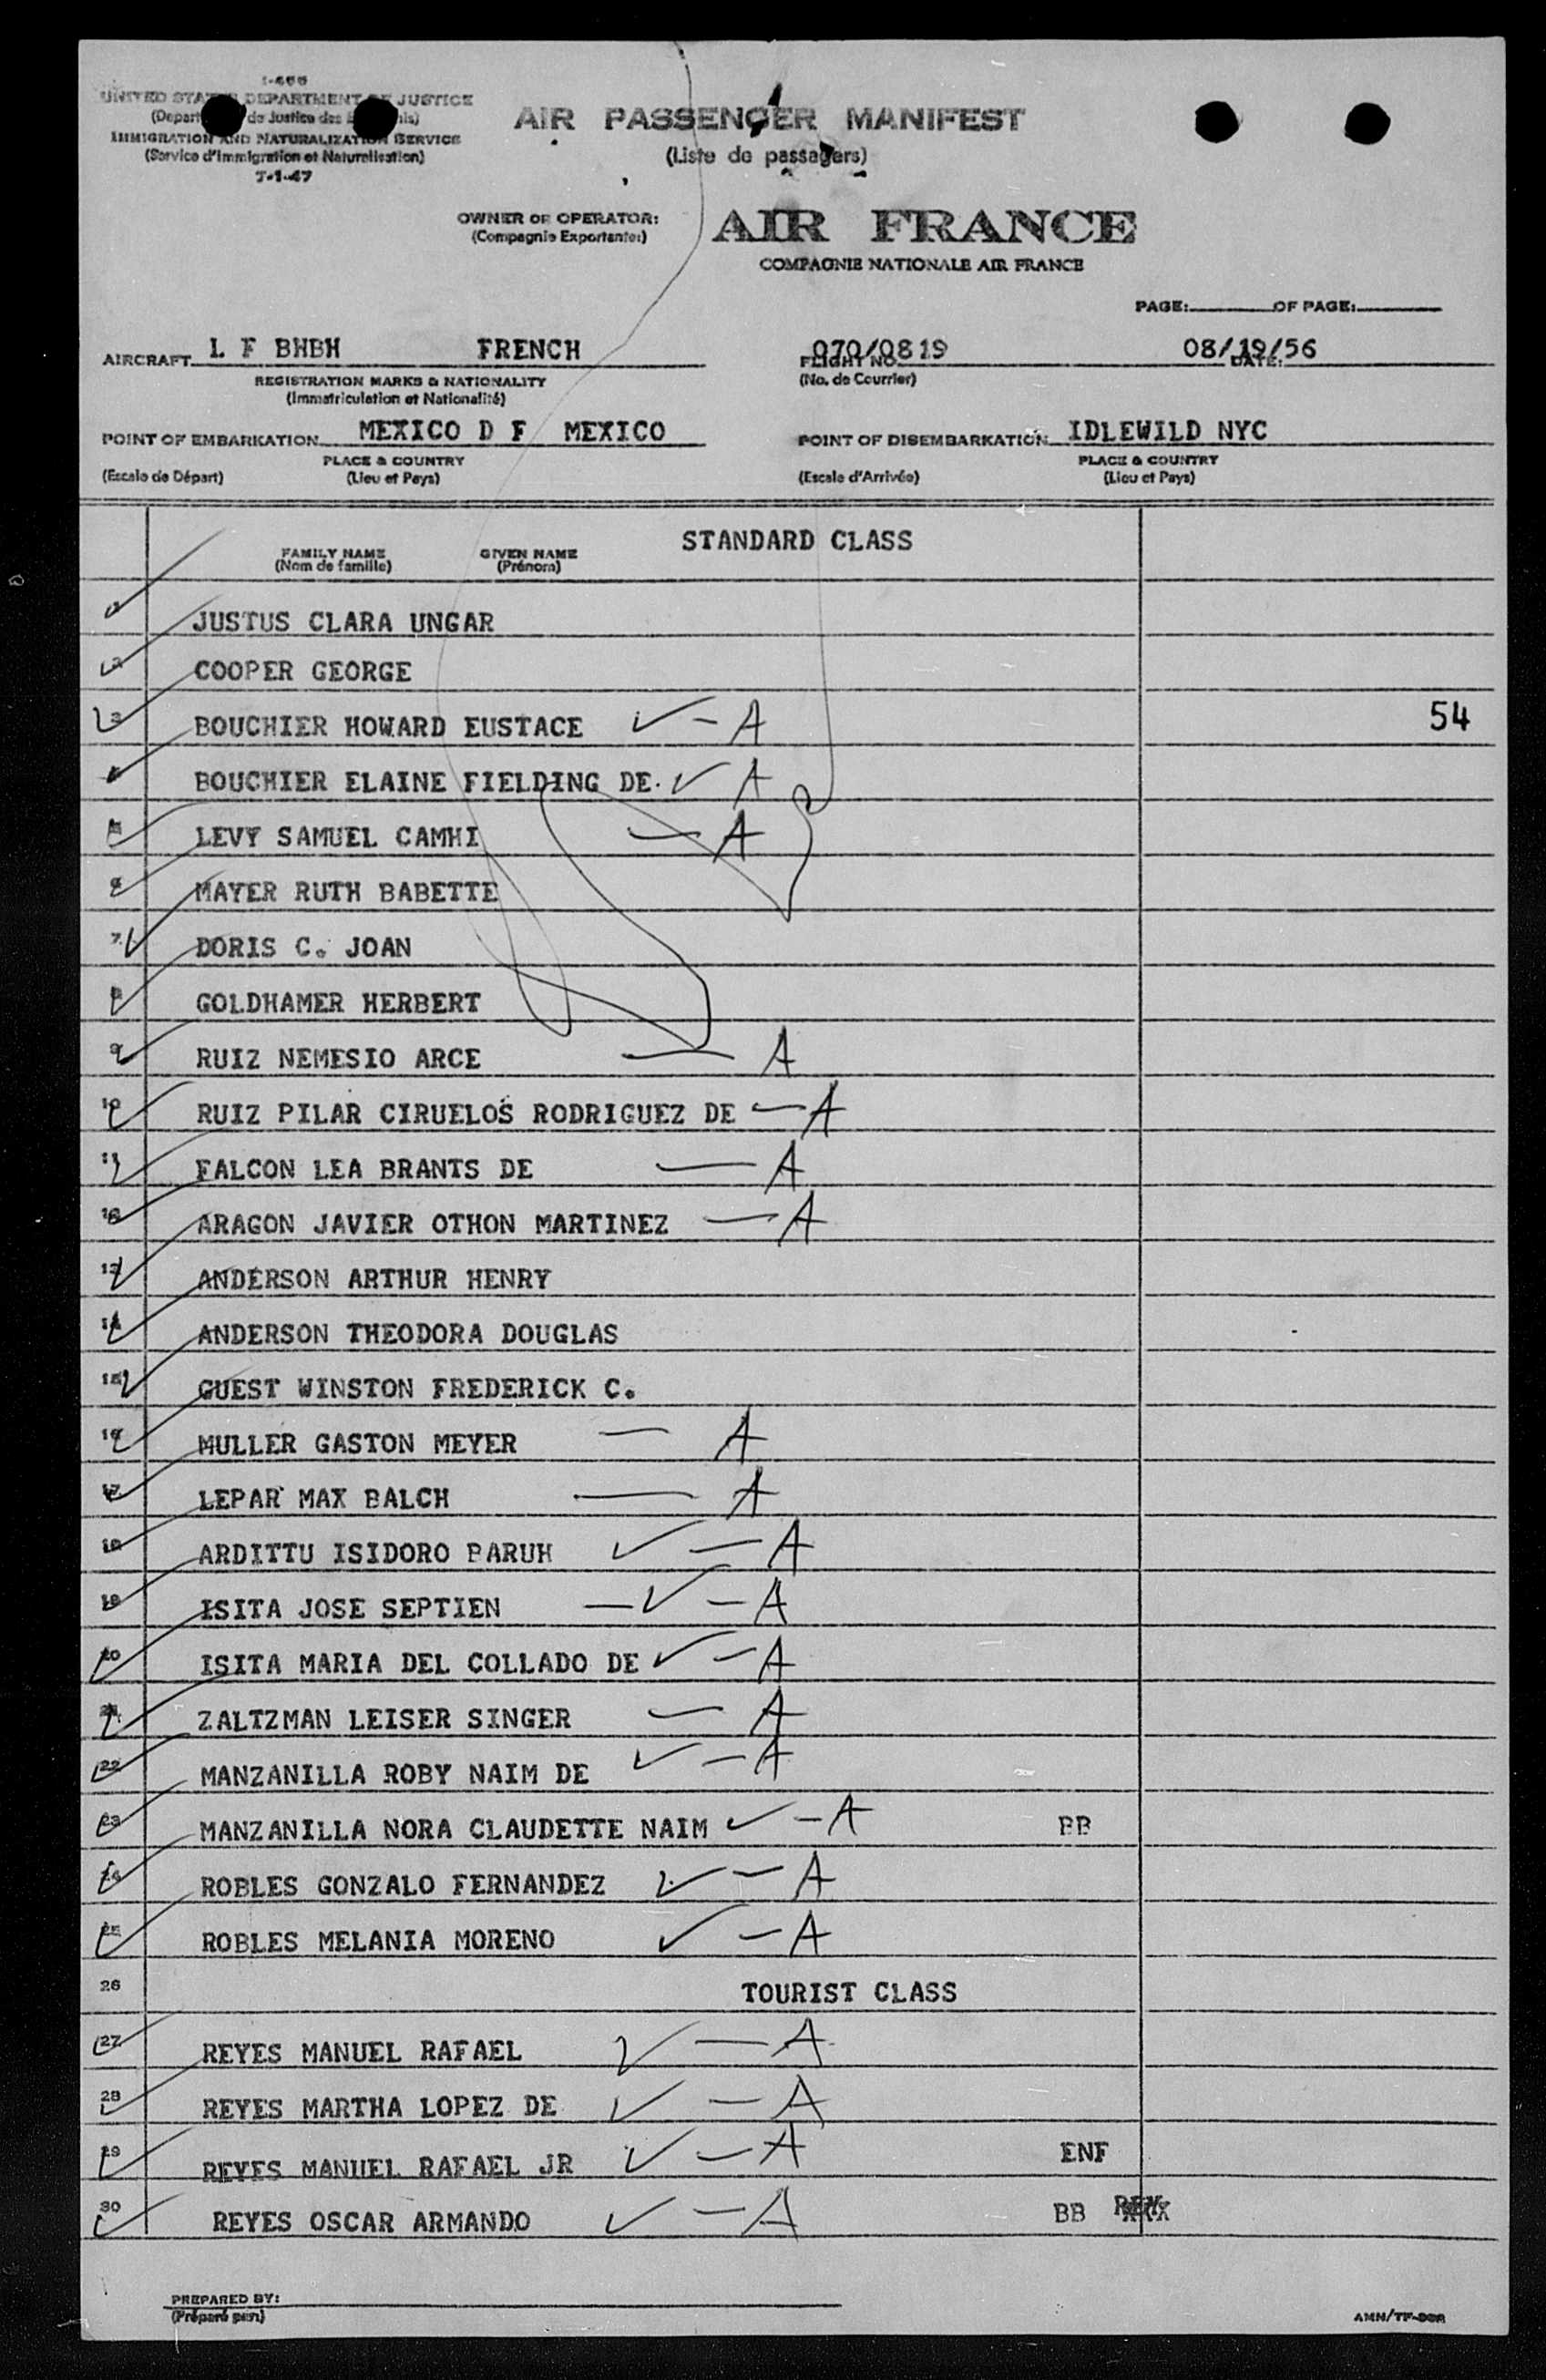 I-466
UNITED STATES DEPARTMENT OF JUSTICE
(Depart de Justice des nis)
IMMIGRATION AND NATURALIZATION SERVICE
(Service d'Immigration et Naturalisation)
7-1-47
AIR PASSENGER MANIFEST
(Liste de passagers)
OWNER OF OPERATOR: AIR FRANCE
(Compagnie Exportante:)
COMPAGNIE NATIONALE AIR FRANCE
PAGE: OF PAGE:
AIRCRAFT L F BHBH FRENCH FLIGHT NO. 070/0819 DATE: 08/19/56
REGISTRATION MARKS & NATIONALITY (No. de Courrier)
(Immatriculation et Nationalité)
POINT OF EMBARKATION MEXICO D F MEXICO POINT OF DISEMBARKATION IDLEWILD NYC
PLACE & COUNTRY PLACE & COUNTRY
(Escale de Départ) (Lieu et Pays) (Escale d'Arrivée) (Lieu et Pays)
STANDARD CLASS
FAMILY NAME GIVEN NAME
(Nom de famille) (Prénom)
JUSTUS CLARA UNGAR
2 COOPER GEORGE
3 BOUCHIER HOWARD EUSTACE ✓ - A 54
BOUCHIER ELAINE FIELDING DE. ✓ A
LEVY SAMUEL CAMHI — A
6 MAYER RUTH BABETTE
7 DORIS C. JOAN
8 GOLDHAMER HERBERT
9 RUIZ NEMESIO ARCE — A
10 RUIZ PILAR CIRUELOS RODRIGUEZ DE — A
11 FALCON LEA BRANTS DE — A
12 ARAGON JAVIER OTHON MARTINEZ — A
13 ANDERSON ARTHUR HENRY
14 ANDERSON THEODORA DOUGLAS
15 GUEST WINSTON FREDERICK C.
16 MULLER GASTON MEYER — A
17 LEPAR MAX BALCH — A
18 ARDITTU ISIDORO BARUH ✓ — A
19 ISITA JOSE SEPTIEN — ✓ — A
20 ISITA MARIA DEL COLLADO DE ✓ — A
21 ZALTZMAN LEISER SINGER — A
22 MANZANILLA ROBY NAIM DE ✓ — A
23 MANZANILLA NORA CLAUDETTE NAIM ✓ — A BB
24 ROBLES GONZALO FERNANDEZ ✓ — A
25 ROBLES MELANIA MORENO ✓ — A
26 TOURIST CLASS
27 REYES MANUEL RAFAEL ✓ — A
28 REYES MARTHA LOPEZ DE ✓ — A
29 REYES MANUEL RAFAEL JR ✓ — A ENF
30 REYES OSCAR ARMANDO ✓ — A BB
PREPARED BY:
(Préparé par:)